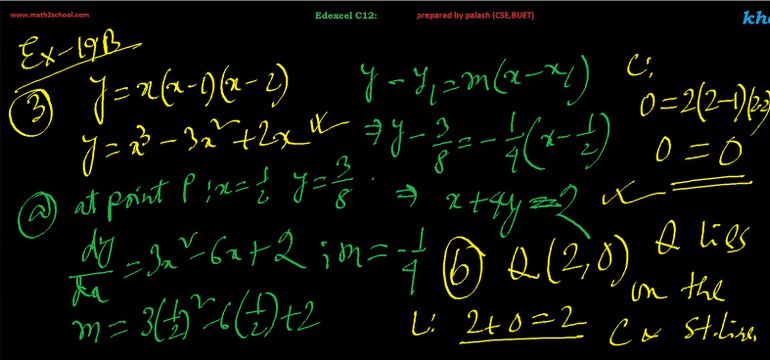 www.math2school.com
Edexcel C12:
prepared by palash (CSE,BUET)
Ex-19B
③ y = x(x-1)(x-2)
y = x³ - 3x² + 2x
ⓐ at point P; x = 1/2 y = 3/8
dy/dx = 3x² - 6x + 2 ; m = -1/4
m = 3(1/2)² - 6(1/2) + 2
y - y₁ = m(x - x₁)
⇒ y - 3/8 = -1/4(x - 1/2)
⇒ x + 4y = 2
ⓑ Q(2,0)
L: 2+0=2
C:
0 = 2(2-1)(2-2)
0 = 0
Q lies
on the
C & St.line